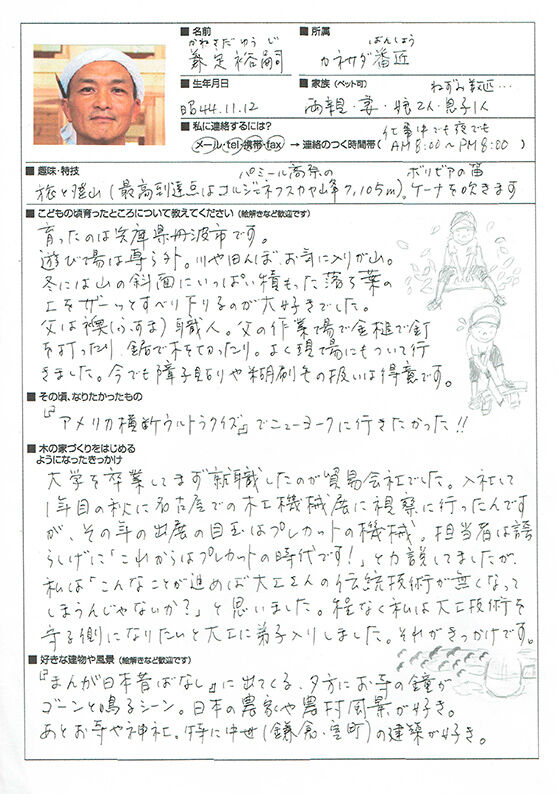 ■ 名前
かねさだ ゆう じ
兼定裕嗣
■ 所属
ばんしょう
カネサダ番匠
■ 生年月日
昭44.11.12
■ 家族（ペット可）
ねずみ数匹…
両親・妻・娘2人・息子1人
■ 私に連絡するには？
メール・tel・携帯・fax → 連絡のつく時間帯（AM 8:00 ～ PM 8:00 ）
仕事中でも夜でも
■ 趣味・特技
パミール高原の
ボリビアの笛
旅と登山（最高到達点はコルジェネフスカヤ峰7,105m）。ケーナを吹きます
■ こどもの頃育ったところについて教えてください（絵解きなど歓迎です）
育ったのは兵庫県丹波市です。
遊び場は専ら外。川や田んぼ、お寺に入りが山。
冬には山の斜面にいっぱい積もった落ち葉の
上をザーッとすべり下りるのが大好きでした。
父は襖（ふすま）職人。父の作業場で金槌で釘
を打ったり、鋸で木を切ったり。よく現場にもついて行
きました。今でも障子貼りや糊刷毛の扱いは得意です。
■ その頃、なりたかったもの
『アメリカ横断ウルトラクイズ』でニューヨークに行きたかった!!
■ 木の家づくりをはじめる
ようになったきっかけ
大学を卒業してまず就職したのが貿易会社でした。入社して
1年目の秋に名古屋での木工機械展に視察に行ったんです
が、その年の出展の目玉はプレカットの機械。担当者は誇
らしげに「これからはプレカットの時代です!」と力説してましたが、
私は「こんなことが進めば大工さんの伝統技術が無くなって
しまうんじゃないか?」と思いました。程なく私は大工技術を
守る側になりたいと大工に弟子入りしました。それがきっかけです。
■ 好きな建物や風景（絵解きなど歓迎です）
『まんが日本昔ばなし』に出てくる、夕方にお寺の鐘が
ゴーンと鳴るシーン。日本の農家や農村風景が好き。
あとお寺や神社。特に中世（鎌倉・室町）の建築が好き。